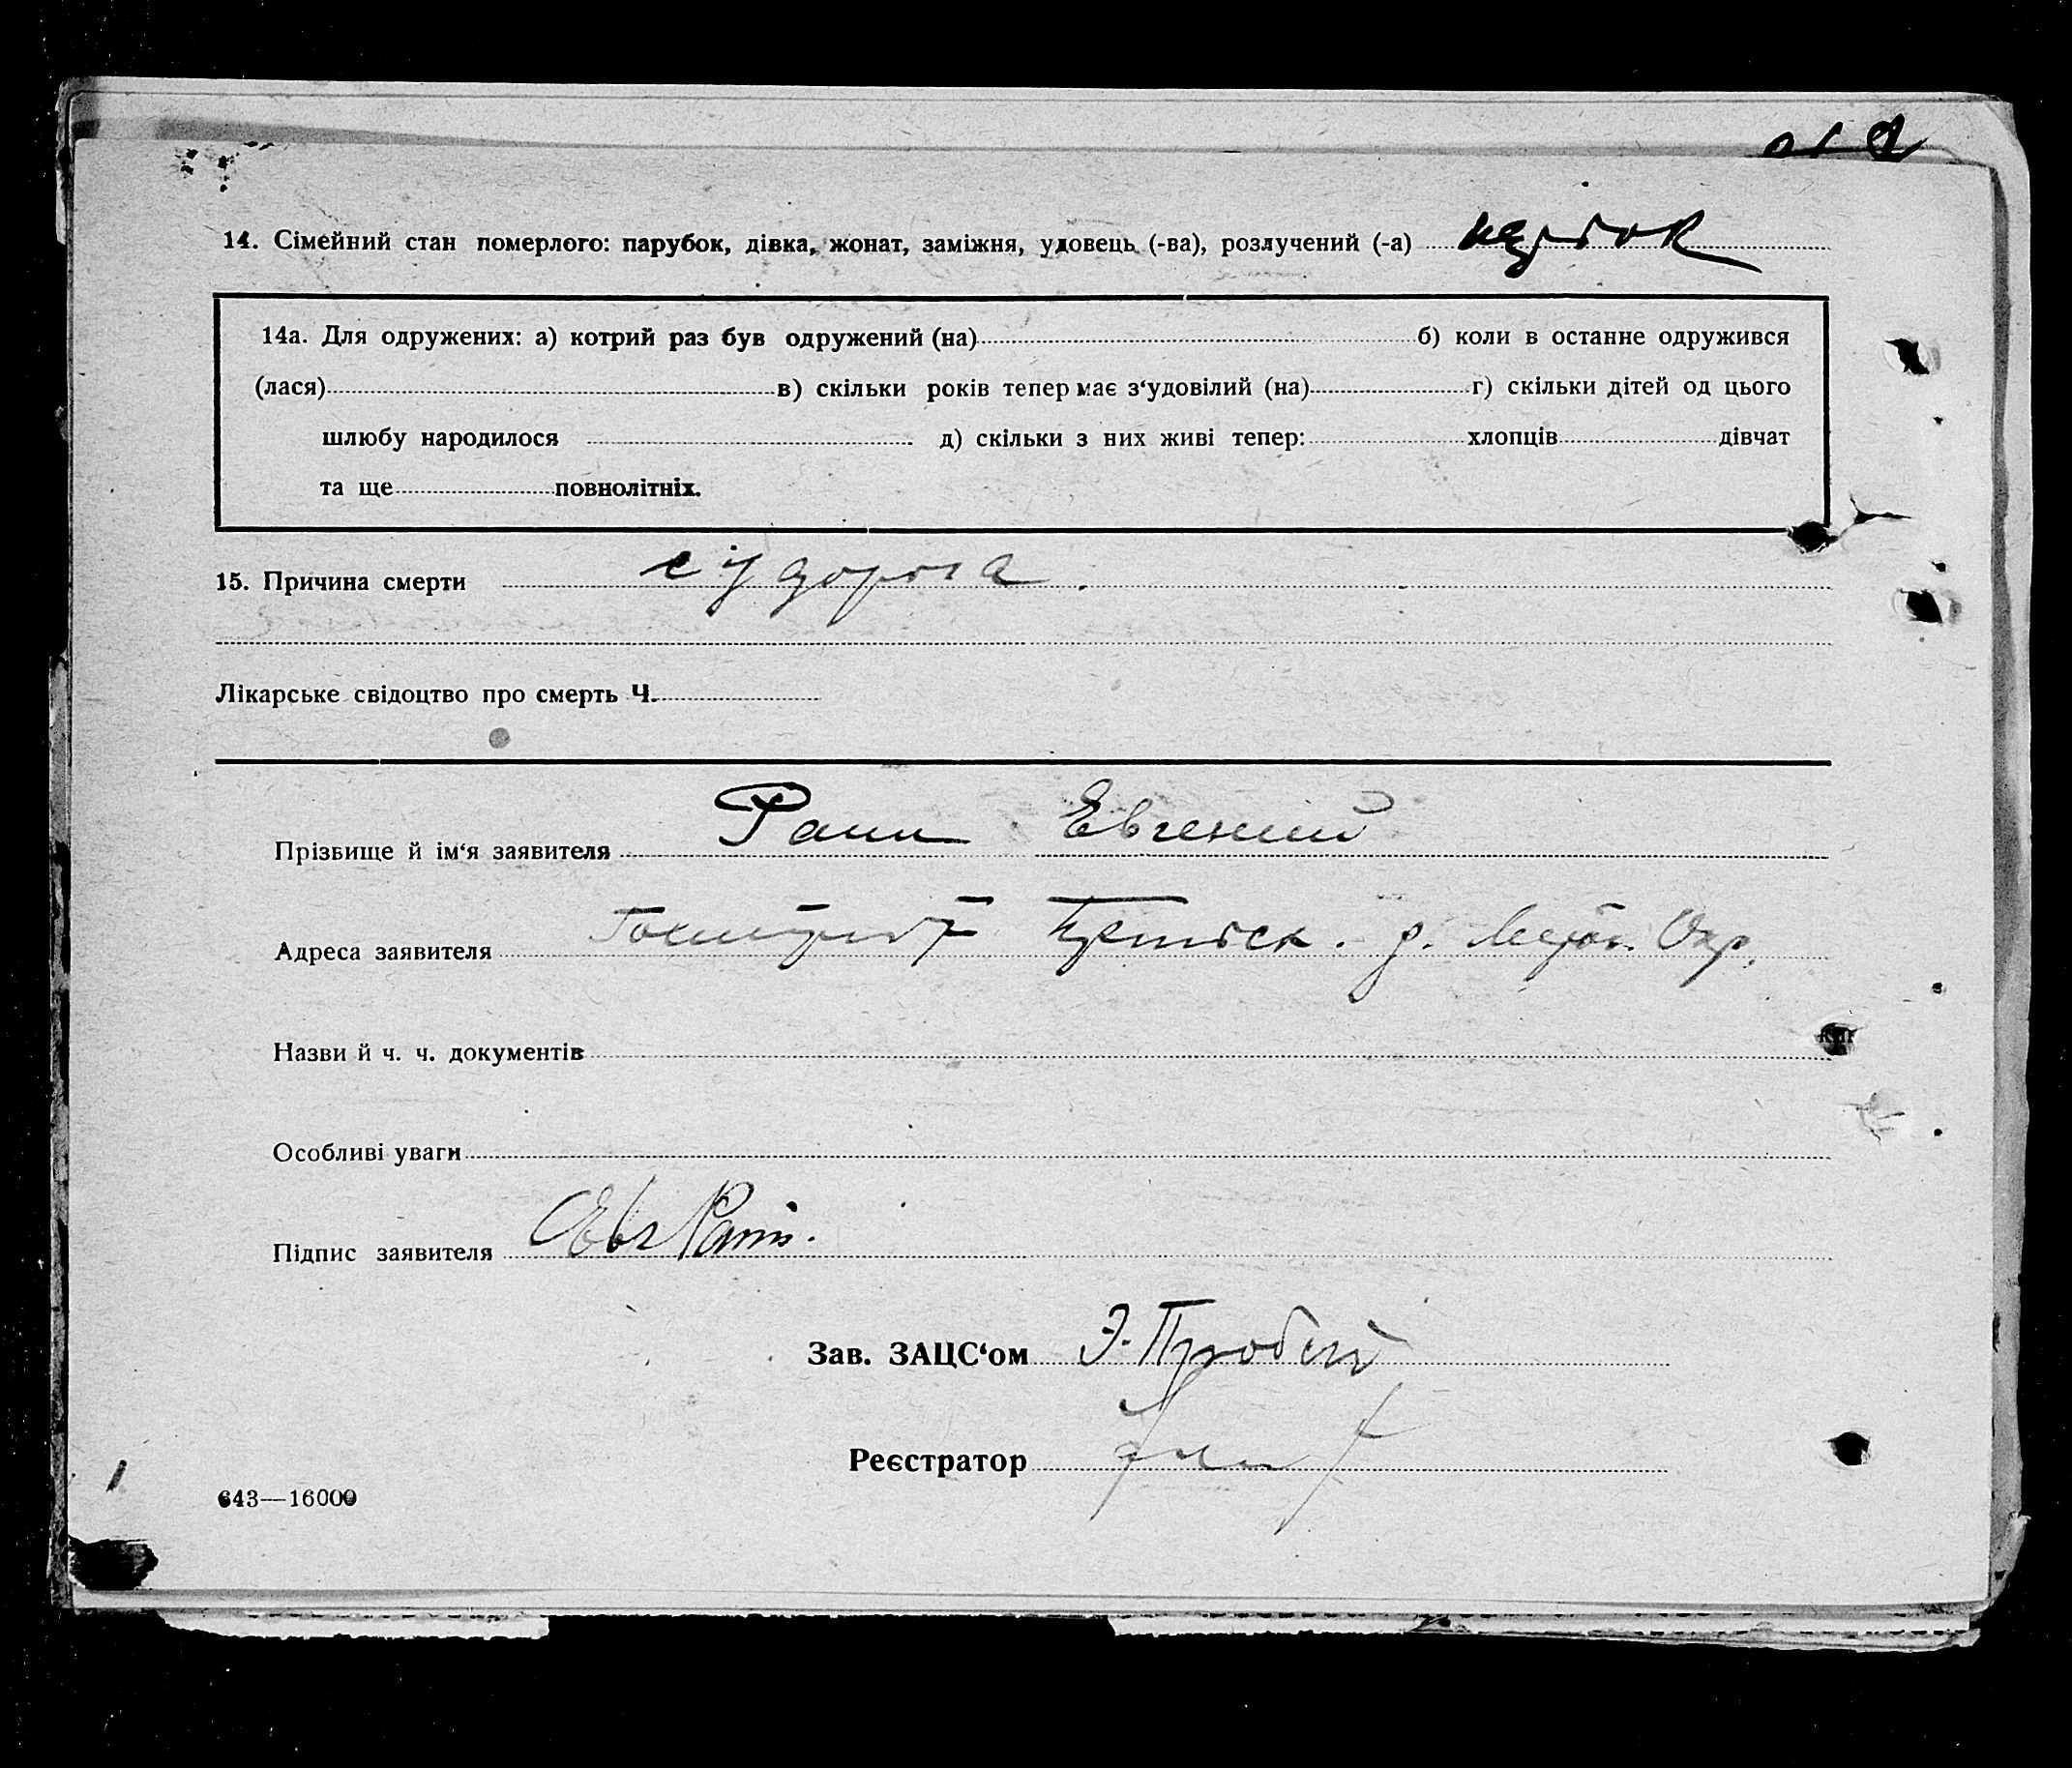 14. Сімейний стан померлого: парубок, дівка, жонат, заміжня, удовець (-ва), розлучений (-а) парубок
14а. Для одружених: а) котрий раз був одружений (на) б) коли в останне одружився
(лася) в) скільки років тепер має з‘удовілий (на) г) скільки дітей од цього
шлюбу народилося д) скільки з них живі тепер: хлопців дівчат
та ще повнолітніх.
15. Причина смерти судорога.
Лікарське свідоцтво про смерть Ч.
Прізвище й ім‘я заявителя Евгений
Адреса заявителя р. Окр.
Назви й ч. ч. документів
Особливі уваги
Підпис заявителя Евг
Зав. ЗАЦС‘ом Э.
Реєстратор
643—16000